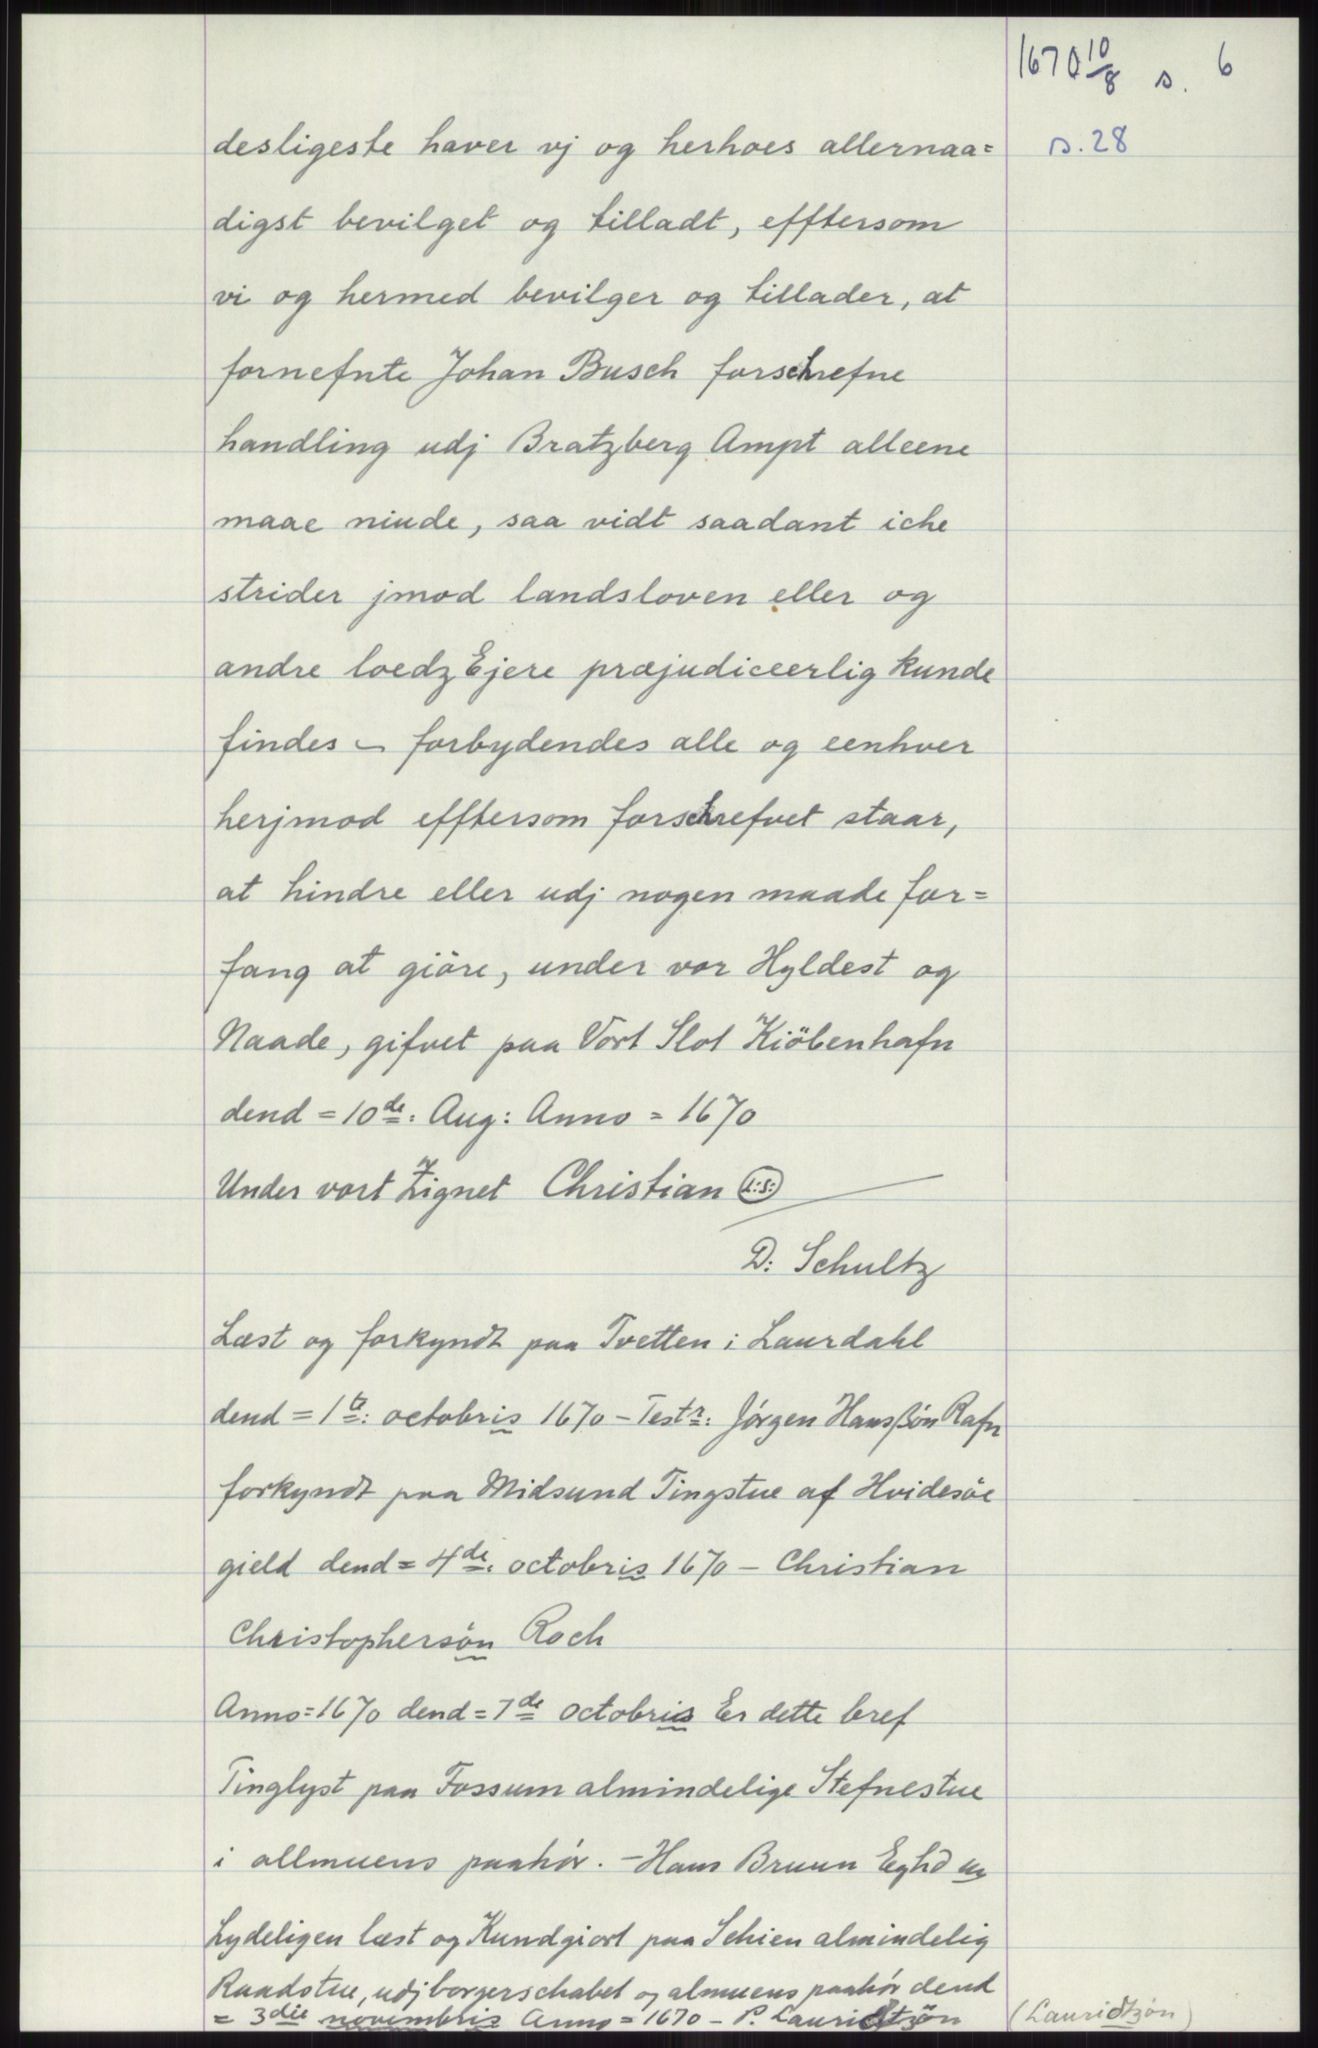 1670 10/8 s. 6
desligeste haver vj og herhoes allernaa= s. 28
digst bevilget og tilladt, efftersom
vi og hermed bevilger og tillader, at
fornefnte Johan Busch forschrefne
handling udj Bratzberg Ampt alleene
maae niude, saa vidt saadant iche
strider jmod landsloven eller og
andre loedz Ejere præjudiceerlig kunde
findes ~ forbydendes alle og eenhver
herjmod efftersom forschrefvet staar,
at hindre eller udj nogen maade for=
fang at giöre, under vor Hyldest og
Naade, gifvet paa Vort Slot Kiöbenhafn
dend = 10de: Aug: Anno = 1670
Under vort Zignet Christian (L:S:)
D: Schultz
Læst og forkyndt paa Tvetten i Laurdahl
dend = 1te: octobris 1670 – Testr: Jörgen Hanssön Rafn
forkyndt paa Midsund Tingstue af Hvidesöe
gield dend = 4de: octobris 1670 – Christian
Christophersön Roch
Anno = 1670 dend = 7de octobris Er dette bref
Tinglyst paa Fossum almindelige Stefnestue
i allmuens paahör. – Hans Bruun Eghd
Lydeligen læst og Kundgiort paa Schien almindelig
Raadstue, udj borgerschabet og almuens paahör dend
= 3die novembris Anno = 1670 – P. Lauridtzön (Lauridtzön)